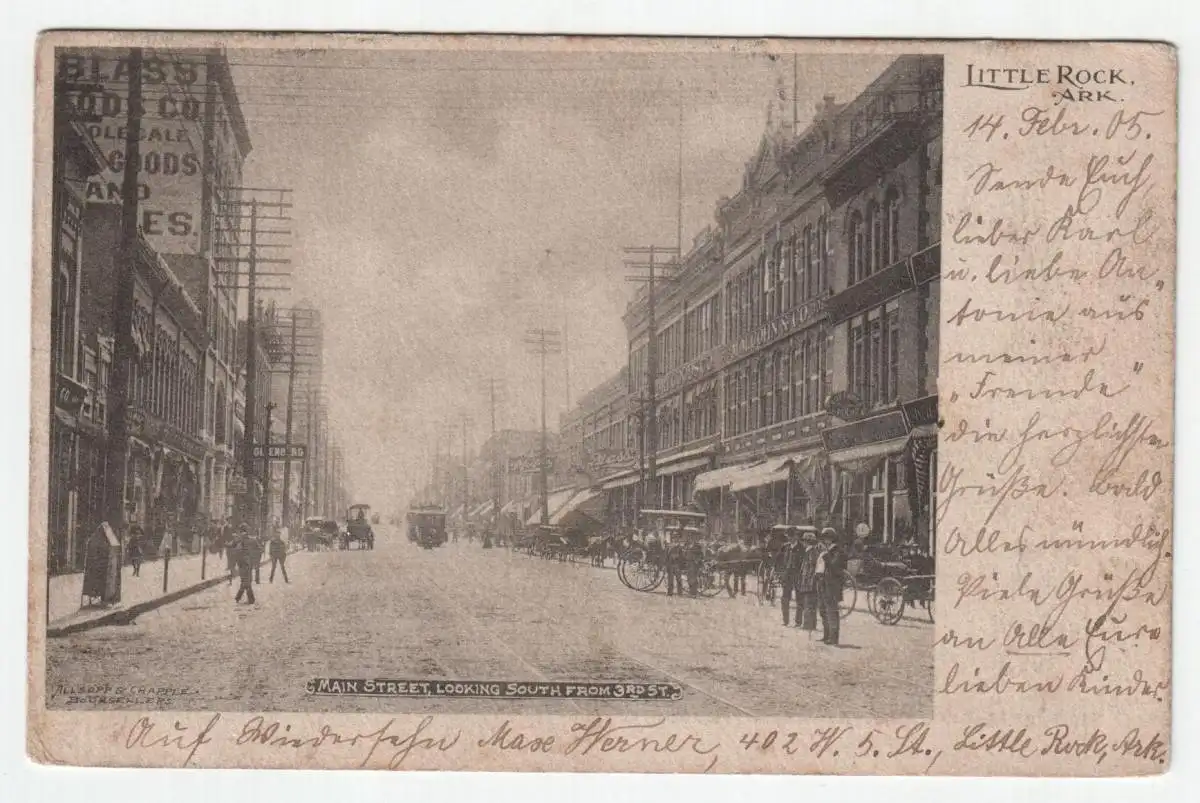 BLASS
CO.
GOODS
AND
ES.
OLENBERG
LITTLE ROCK,
ARK.
14. Febr. 05.
Sende Euch,
lieber Karl
u. liebe An-
tonie aus
meiner
„Fremde"
die herzlichsten
Grüße. Bald
Alles mündlich.
Viele Grüße
an Alle Eure
lieben Kinder.
ALLSOPP & CHAPPLE
BOOKSELLERS
MAIN STREET, LOOKING SOUTH FROM 3RD ST.
Auf Wiedersehn Max Werner, 402 W. 5. St., Little Rock, Ark.